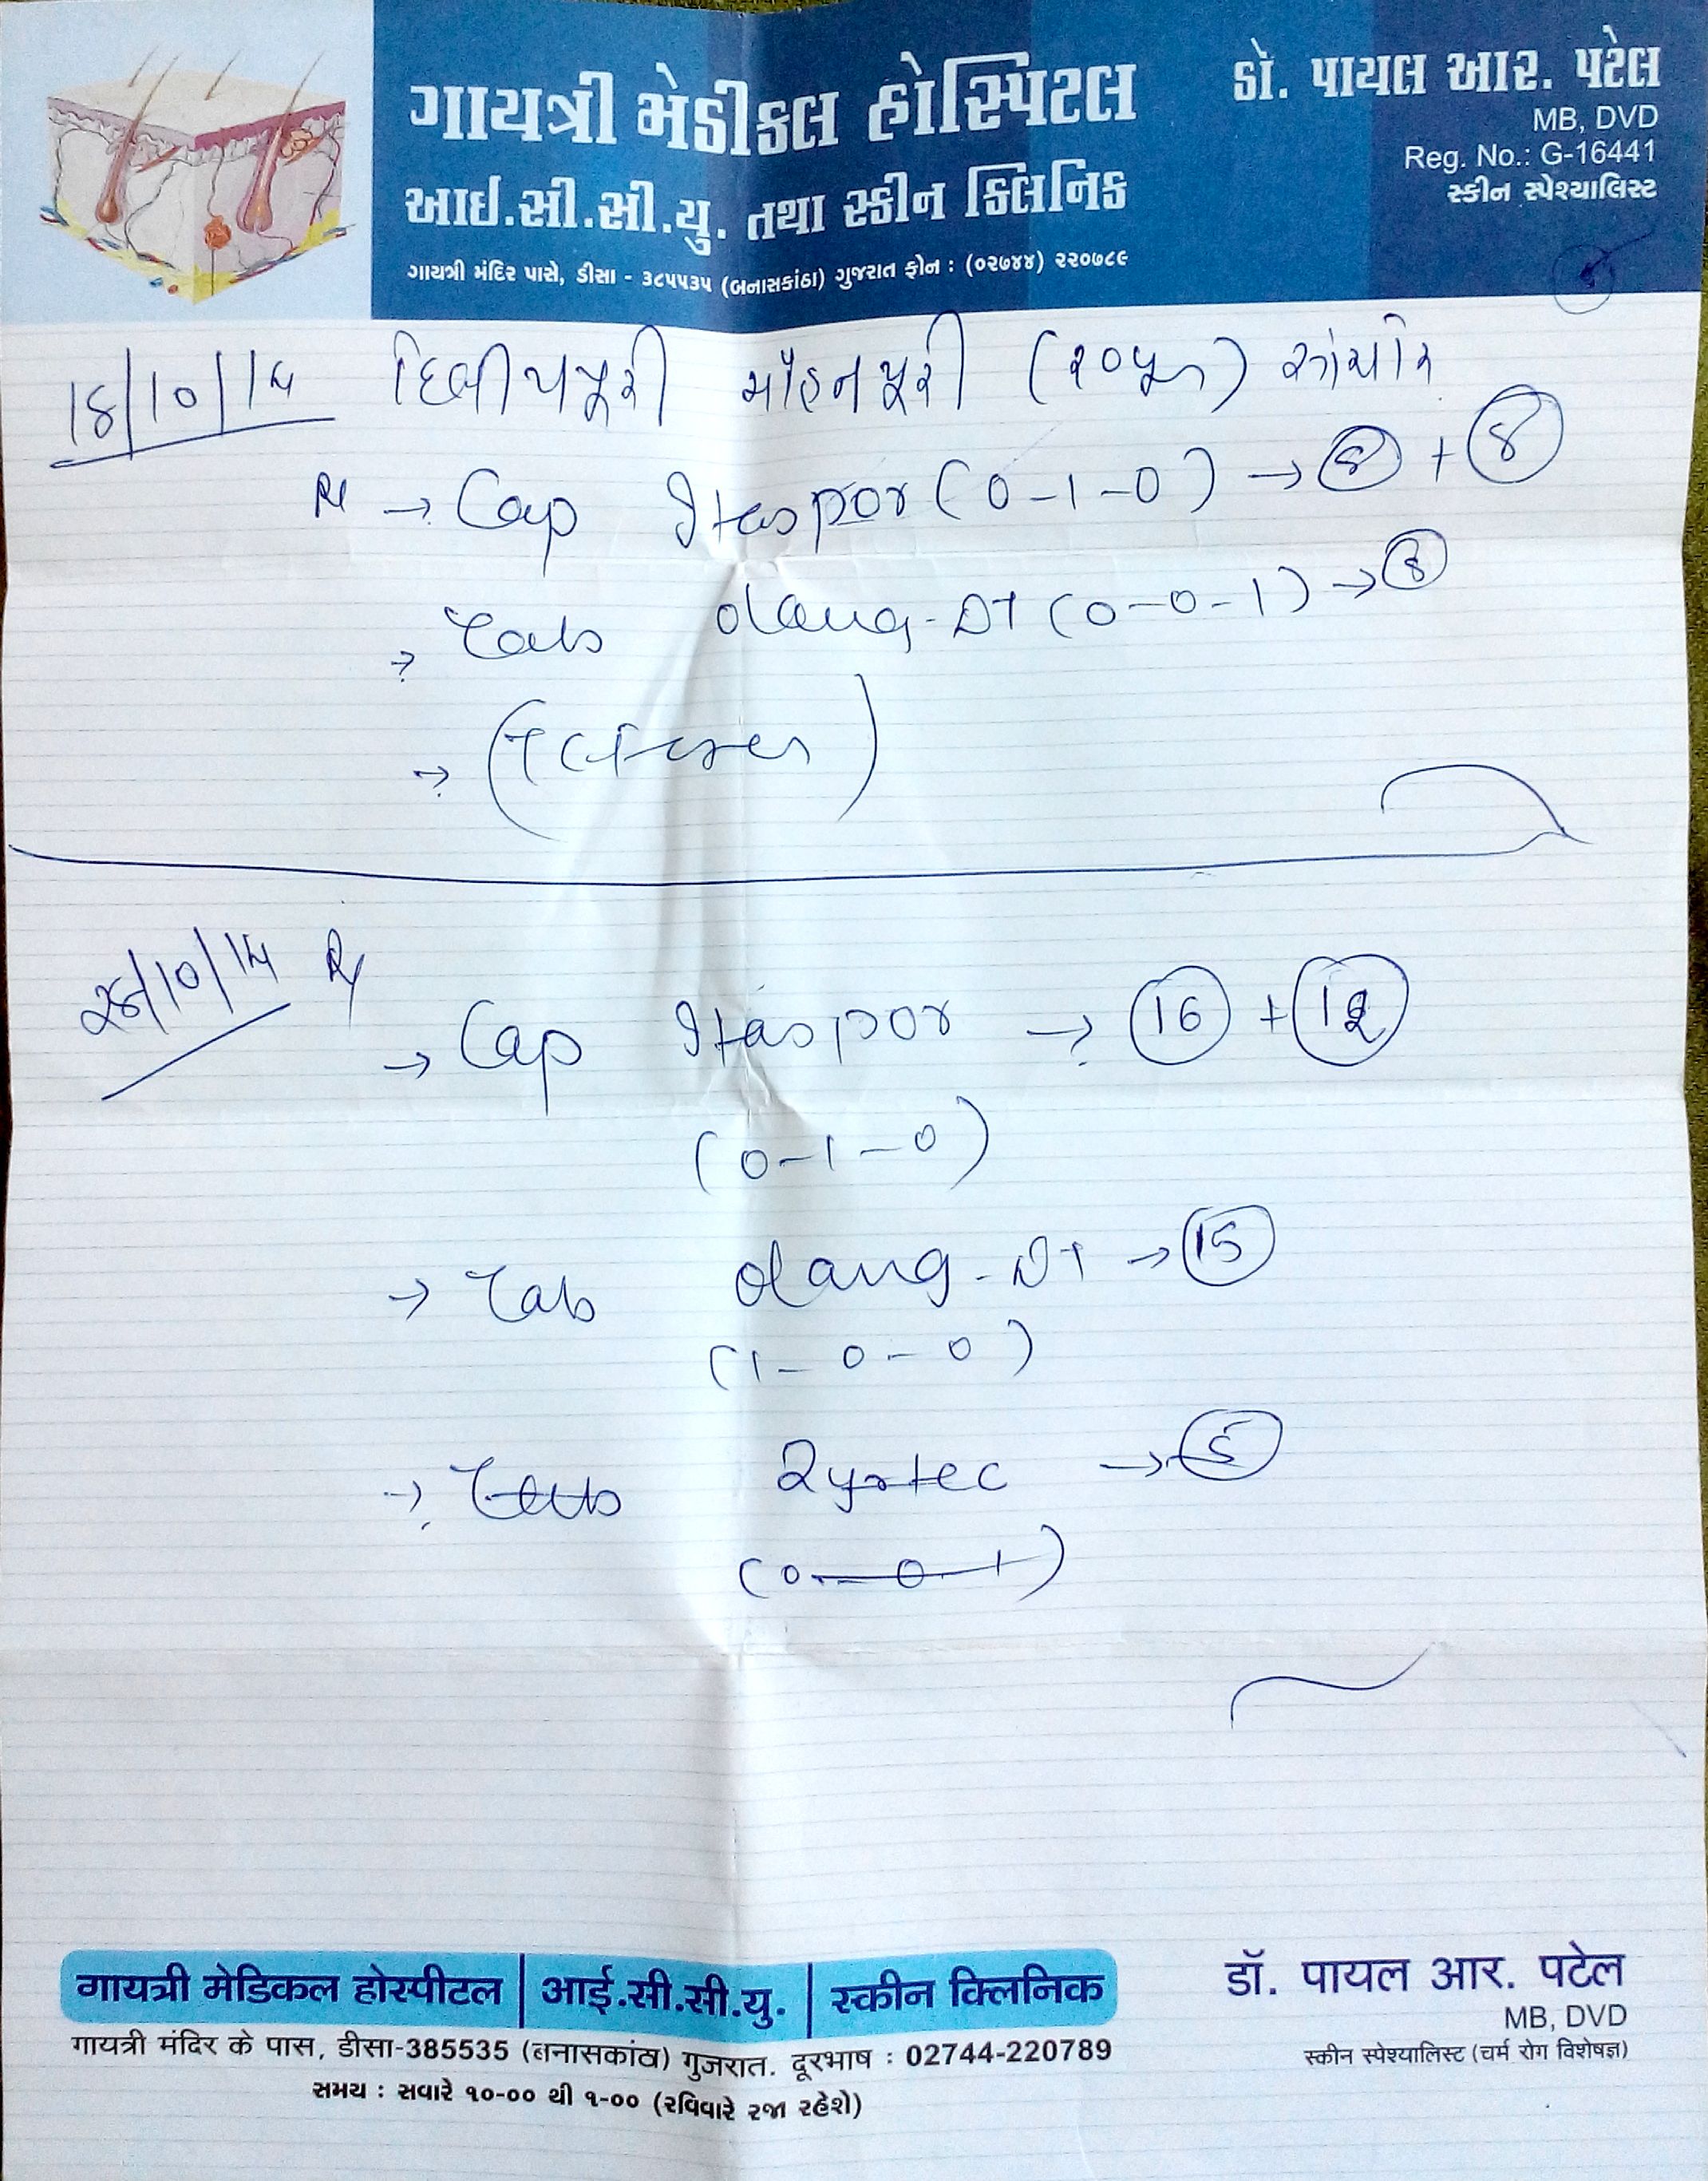 ગાયત્રી મેડીકલ હોસ્પિટલ
આઈ.સી.સી.યુ. તથા સ્કીન ક્લિનિક
ગાયત્રી મંદિર પાસે, ડીસા - ૩૮૫૫૩૫ (બનાસકાંઠા) ગુજરાત ફોન : (૦૨૭૪૪) ૨૨૦૭૮૯
ડૉ. પાયલ આર. પટેલ
MB, DVD
Reg. No.: G-16441
સ્કીન સ્પેશ્યાલિસ્ટ
દિલીપપૂરી મોહનપૂરી
→ Cap Itaspor (0-1-0) →
→ Tab olang-DT (0-0-1) →
→
→ Cap Itaspor → 16 + 12
(0-1-0)
→ Tab olang-DT → 15
(1-0-0)
→ Tab Zyrtec →
(0-0-1)
गायत्री मेडिकल होस्पीटल | आई.सी.सी.यु. | स्कीन क्लिनिक
गायत्री मंदिर के पास, डीसा-385535 (बनासकांठा) गुजरात. दूरभाष : 02744-220789
સમય : સવારે ૧૦-૦૦ થી ૧-૦૦ (રવિવારે રજા રહેશે)
डॉ. पायल आर. पटेल
MB, DVD
स्कीन स्पेश्यालिस्ट (चर्म रोग विशेषज्ञ)